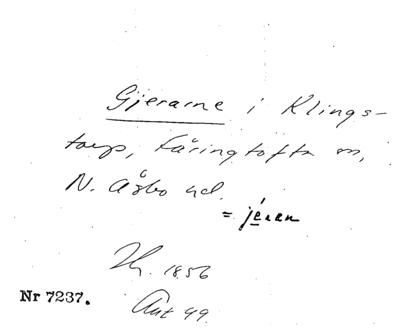 Gjerarne i Klings-
torp, Färingtofta sn,
N. Åsbo hd.
= jéran
1856
Nr 7237.
Ant 49.